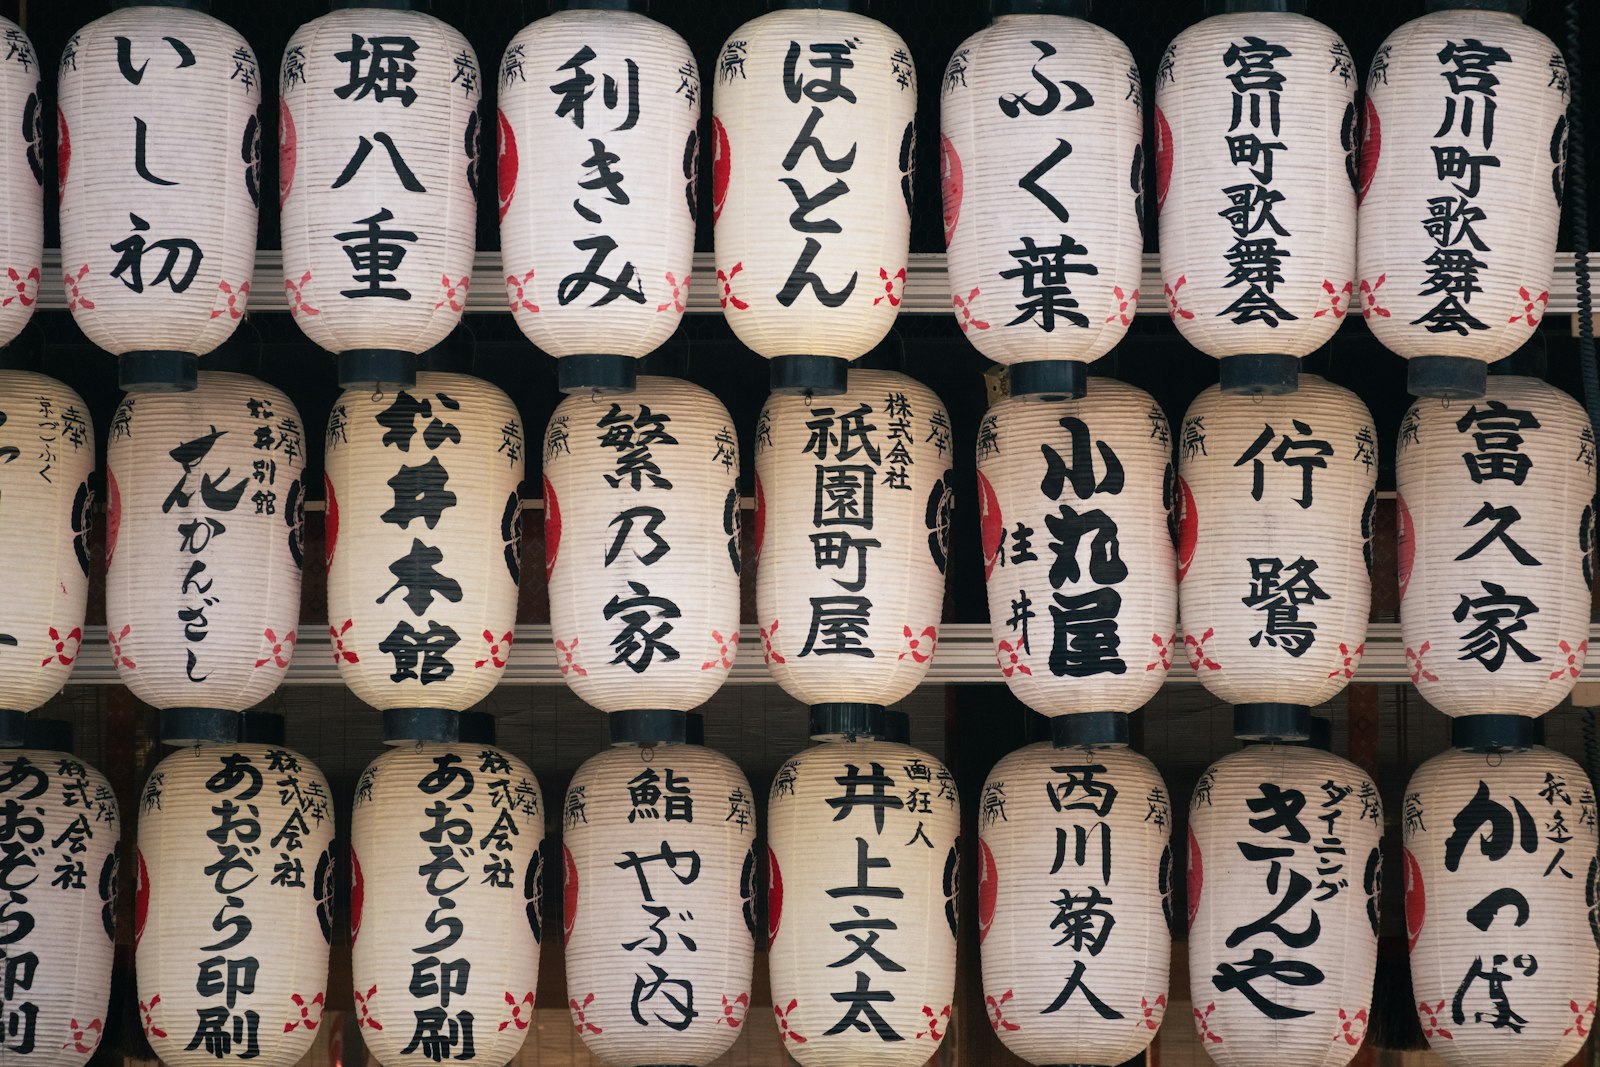 奉
いし初
奉
堀八重
奉
利きみ
奉
ぼんとん
奉
ふく葉
奉
宮川町歌舞会
奉
宮川町歌舞会
京つふく
奉
松井別館
花かんざし
奉
松井本館
奉
繁乃家
奉
株式会社
祇園町屋
奉
小丸屋
住井
奉
佇鷺
奉
富久家
奉
株式会社
あおぞら印刷
奉
株式会社
あおぞら印刷
奉
株式会社
あおぞら印刷
奉
鮨
やぶ内
奉
画狂人
井上文太
西川菊人
奉
ダイニング
きりんや
奉
かっぱ